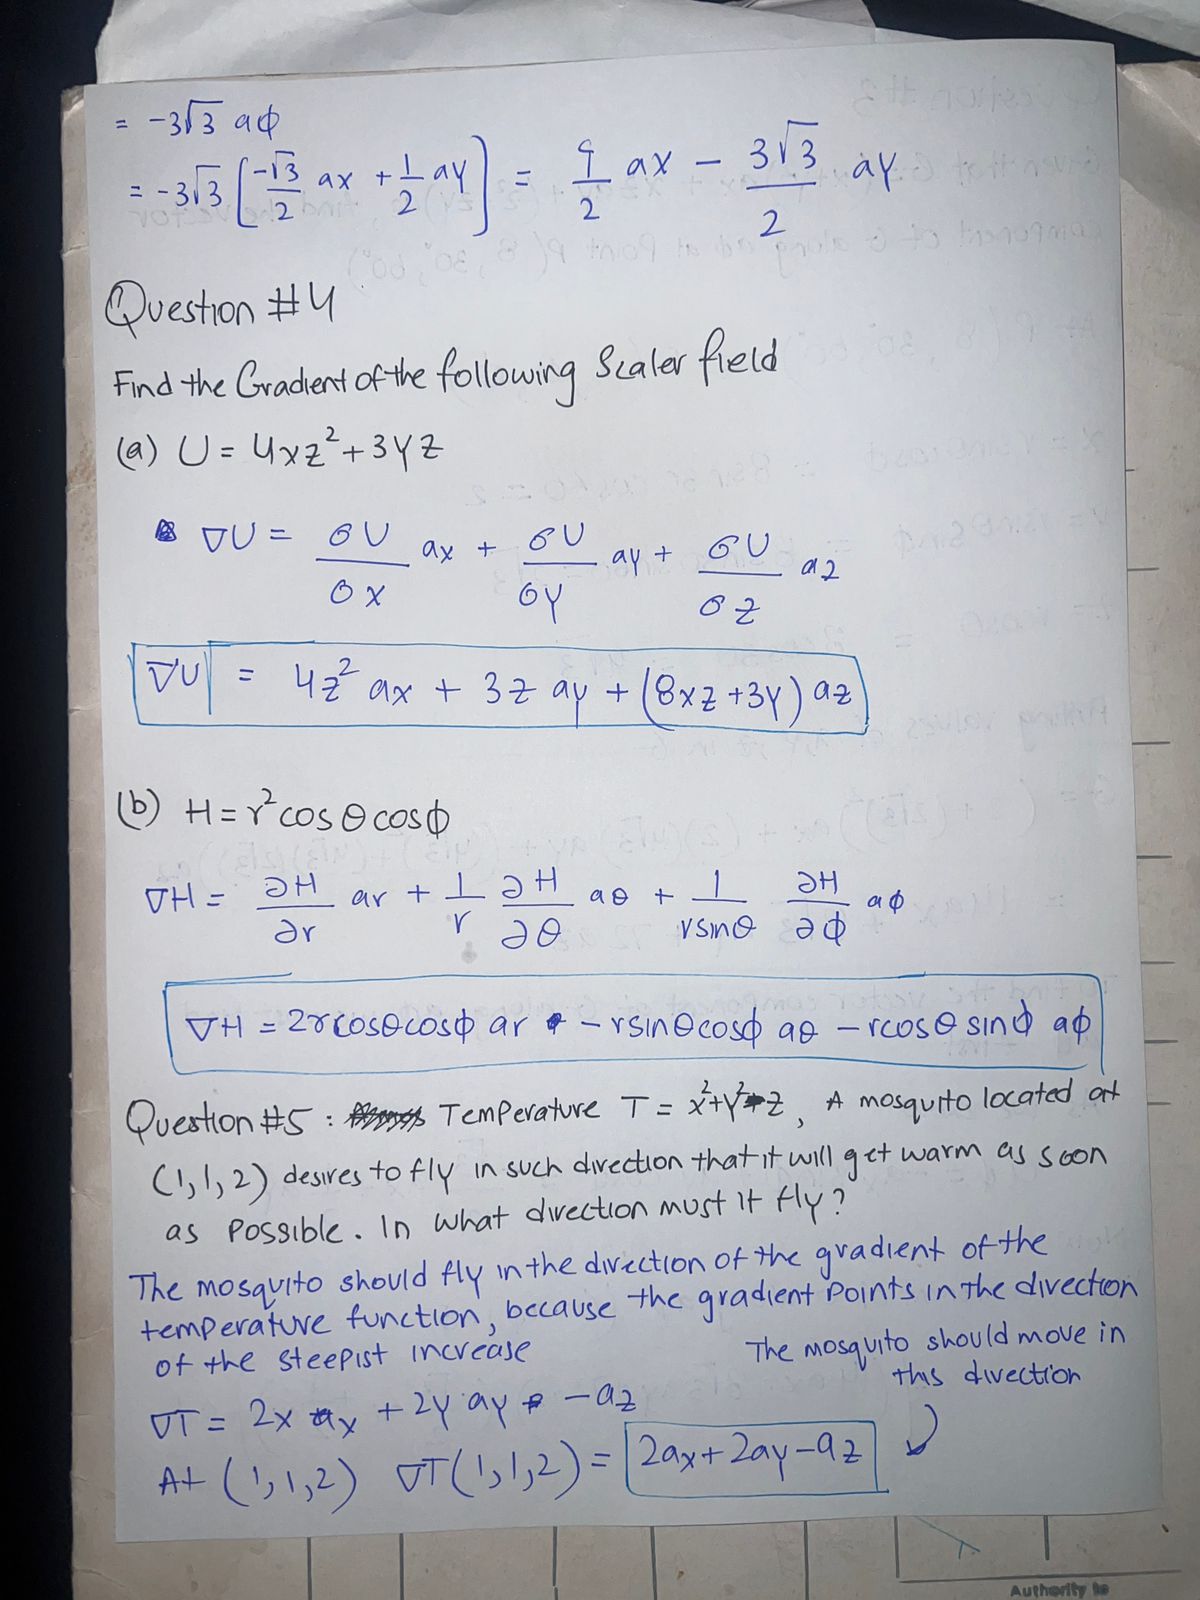 = -3√3 aϕ
= -3√3 [ -√3/2 ax + 1/2 ay ] = 9/2 ax - 3√3/2 ay
Question #4
Find the Gradient of the following Scaler field
(a) U = 4xz² + 3YZ
∇U = σU/σx ax + σU/σY ay + σU/σz az
∇U = 4z² ax + 3z ay + (8xz + 3Y) az
(b) H = r² cos θ cos ϕ
∇H = ∂H/∂r ar + 1/r ∂H/∂θ aθ + 1/rsinθ ∂H/∂ϕ aϕ
∇H = 2rcosθcosϕ ar - rsinθcosϕ aθ - rcosθ sinϕ aϕ
Question #5 : Temperature T = x²+y²-z, A mosquito located at
(1,1,2) desires to fly in such direction that it will get warm as soon
as possible. In what direction must it fly?
The mosquito should fly in the direction of the gradient of the
temperature function, because the gradient points in the direction
of the steepist increase
The mosquito should move in
this direction
∇T = 2x ax + 2y ay - az
At (1,1,2) ∇T(1,1,2) = 2ax + 2ay - az
Authority to